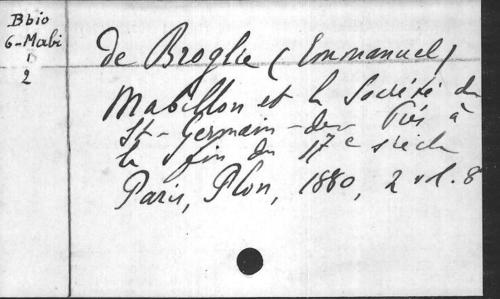 Bbio
6-Mabi
1
2
de Broglie (Emmanuel)
Mabillon et la Société de
St-Germain-des Prés à
la fin du 17e siècle
Paris, Plon, 1880, 2 vol. 8